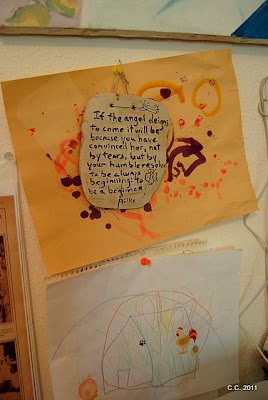 If the angel deigns
to come it will be
because you have
convinced her, not
by tears, but by
your humble resolve
to be always
beginning; to
be a beginner.
Rilke
C.C. 2011